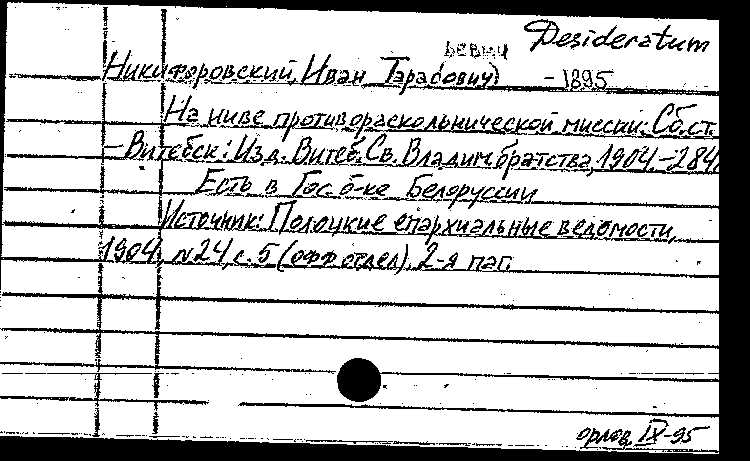 Desideratum
ьевич
Никифоровский, Иван Тарасович) - 1895
На ниве противораскольнической миссии. Сб. ст.
- Витебск: Изд. Витеб. Св. Владим. братства, 1904. - 284
Есть в Гос. б-ке Белоруссии
Источник: Полоцкие епархиальные ведомости,
1904, N24, с. 5 (офф отдел). 2-я паг.
орлов, IX-95